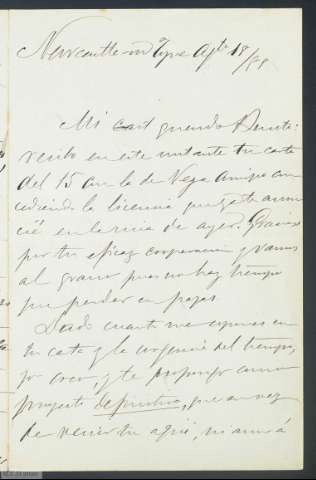 Newcastle on Tyne Agto 18/78
Mi querido Benito:
recibo en este instante tu carta
del 15 con la de Vega Armijo con
cediendo la licencia que ya te anun
cié en la mia de ayer. Gracias
por tu eficaz cooperacion y vamos
al grano pues no hay tiempo
que perder en pajas.
Dado cuanto me expones en
tu carta y la urgencia del tiempo,
yo creo, y te propongo como
proyecto definitivo, que en vez
de venir tu aqui, ni aun á